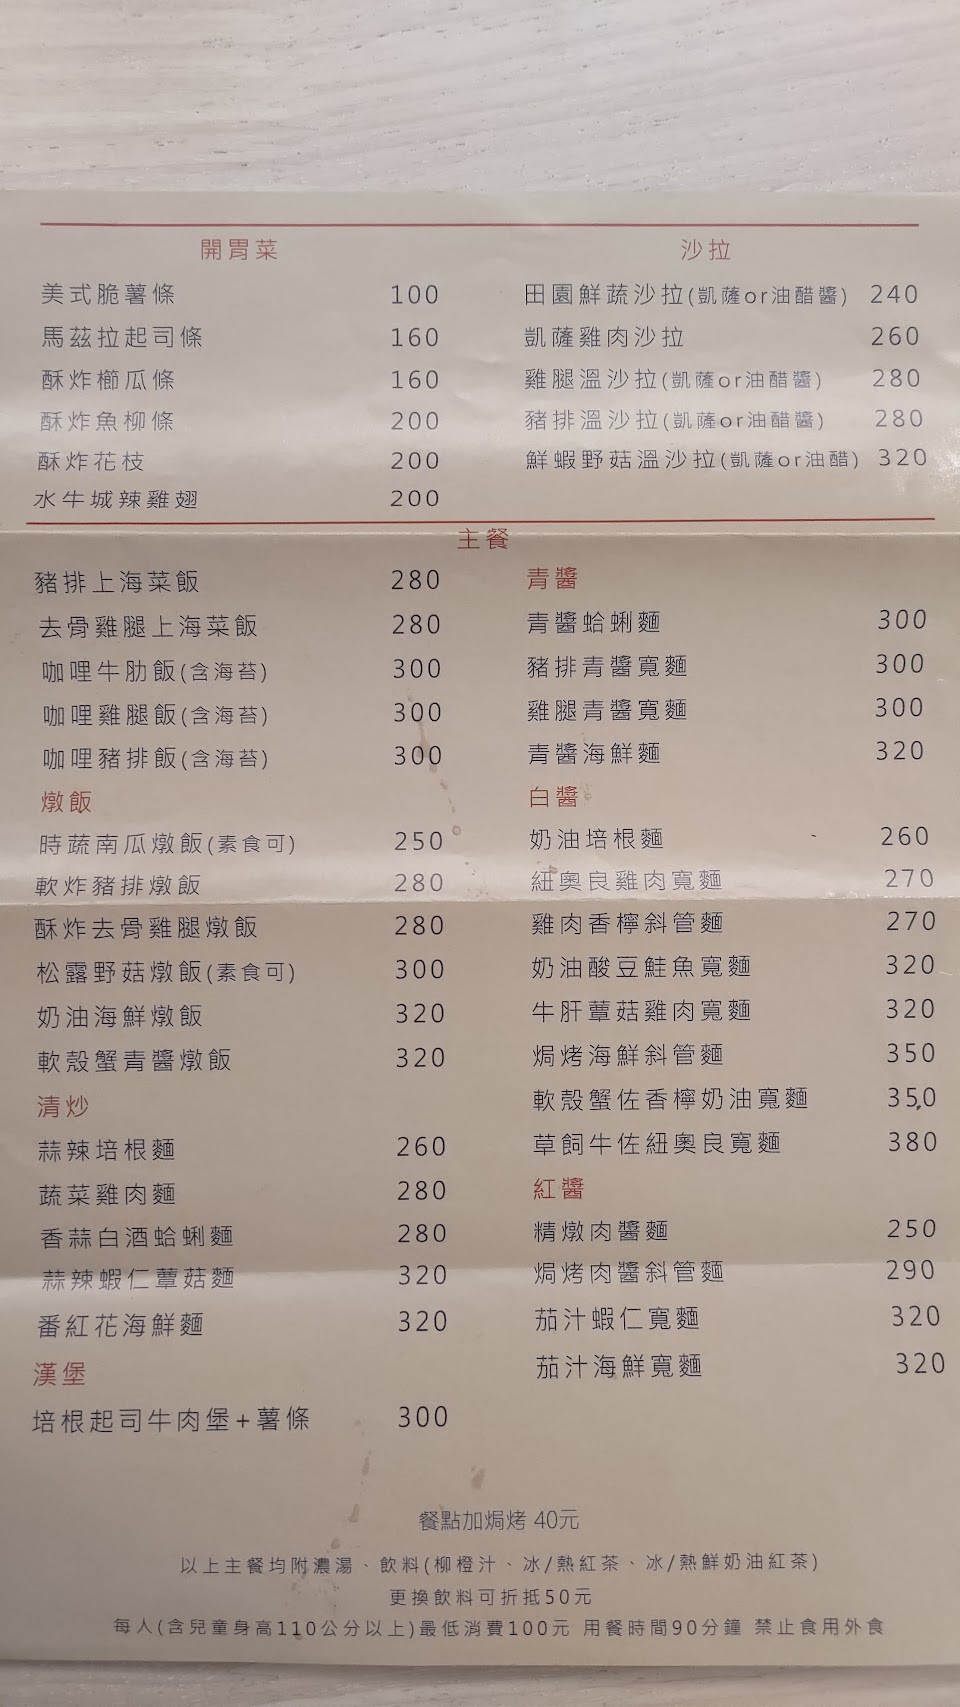 開胃菜
美式脆薯條 100
馬茲拉起司條 160
酥炸櫛瓜條 160
酥炸魚柳條 200
酥炸花枝 200
水牛城辣雞翅 200
沙拉
田園鮮蔬沙拉(凱薩or油醋醬) 240
凱薩雞肉沙拉 260
雞腿溫沙拉(凱薩or油醋醬) 280
豬排溫沙拉(凱薩or油醋醬) 280
鮮蝦野菇溫沙拉(凱薩or油醋) 320
主餐
豬排上海菜飯 280
去骨雞腿上海菜飯 280
咖哩牛肋飯(含海苔) 300
咖哩雞腿飯(含海苔) 300
咖哩豬排飯(含海苔) 300
燉飯
時蔬南瓜燉飯(素食可) 250
軟炸豬排燉飯 280
酥炸去骨雞腿燉飯 280
松露野菇燉飯(素食可) 300
奶油海鮮燉飯 320
軟殼蟹青醬燉飯 320
清炒
蒜辣培根麵 260
蔬菜雞肉麵 280
香蒜白酒蛤蜊麵 280
蒜辣蝦仁蕈菇麵 320
番紅花海鮮麵 320
漢堡
培根起司牛肉堡+薯條 300
青醬
青醬蛤蜊麵 300
豬排青醬寬麵 300
雞腿青醬寬麵 300
青醬海鮮麵 320
白醬
奶油培根麵 260
紐奧良雞肉寬麵 270
雞肉香檸斜管麵 270
奶油酸豆鮭魚寬麵 320
牛肝蕈菇雞肉寬麵 320
焗烤海鮮斜管麵 350
軟殼蟹佐香檸奶油寬麵 350
草飼牛佐紐奧良寬麵 380
紅醬
精燉肉醬麵 250
焗烤肉醬斜管麵 290
茄汁蝦仁寬麵 320
茄汁海鮮寬麵 320
餐點加焗烤 40元
以上主餐均附濃湯、飲料(柳橙汁、冰/熱紅茶、冰/熱鮮奶油紅茶)
更換飲料可折抵50元
每人(含兒童身高110公分以上)最低消費100元 用餐時間90分鐘 禁止食用外食